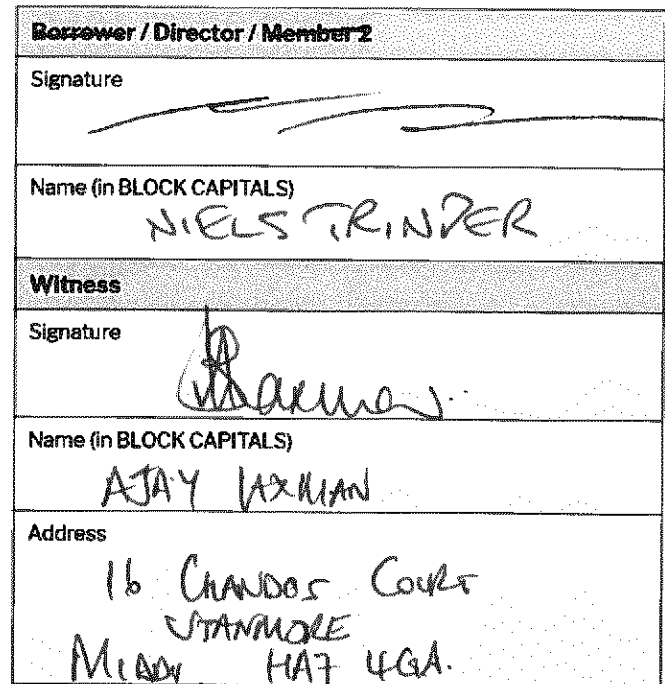 Borrower / Director / Member 2
Signature
Name (in BLOCK CAPITALS)
NIELS TRINDER
Witness
Signature
Name (in BLOCK CAPITALS)
AJAY LAXMAN
Address
16 CHANDOS COURT
STANMORE
MIDDX HA7 4GA.